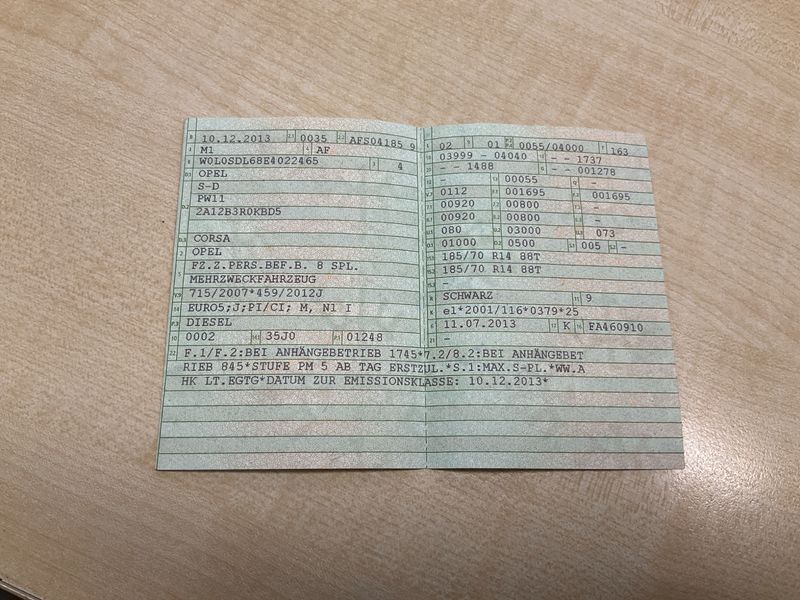 B 10.12.2013 2.1 0035 2.2 AFS04185 9
J M1 4 AF
E W0L0SDL68E4022465 3 4
D.1 OPEL
S-D
D.2 PW11
2A12B3R0KBD5
D.3 CORSA
2 OPEL
5 FZ.Z.PERS.BEF.B. 8 SPL.
MEHRZWECKFAHRZEUG
V.9 715/2007*459/2012J
14 EURO5;J;PI/CI; M, N1 I
P.3 DIESEL
10 0002 14.1 35J0 P.1 01248
L 02 9 01 P.2 P.4 0055/04000 T 163
18 03999 - 04040 19 - - 1737
20 - - 1488 G - - 001278
12 - 13 00055 Q -
V.7 0112 F.1 001695 F.2 001695
7.1 00920 7.2 00800 7.3 -
8.1 00920 8.2 00800 8.3 -
U.1 080 U.2 03000 U.3 073
O.1 01000 O.2 0500 S.1 005 S.2 -
15.1 185/70 R14 88T
15.2 185/70 R14 88T
15.3 -
R SCHWARZ 11 9
K e1*2001/116*0379*25
6 11.07.2013 17 K 16 FA460910
21 -
22 F.1/F.2:BEI ANHÄNGEBETRIEB 1745*7.2/8.2:BEI ANHÄNGEBET
RIEB 845*STUFE PM 5 AB TAG ERSTZUL.*S.1:MAX.S-PL.*WW.A
HK LT.EGTG*DATUM ZUR EMISSIONKLASSE: 10.12.2013*